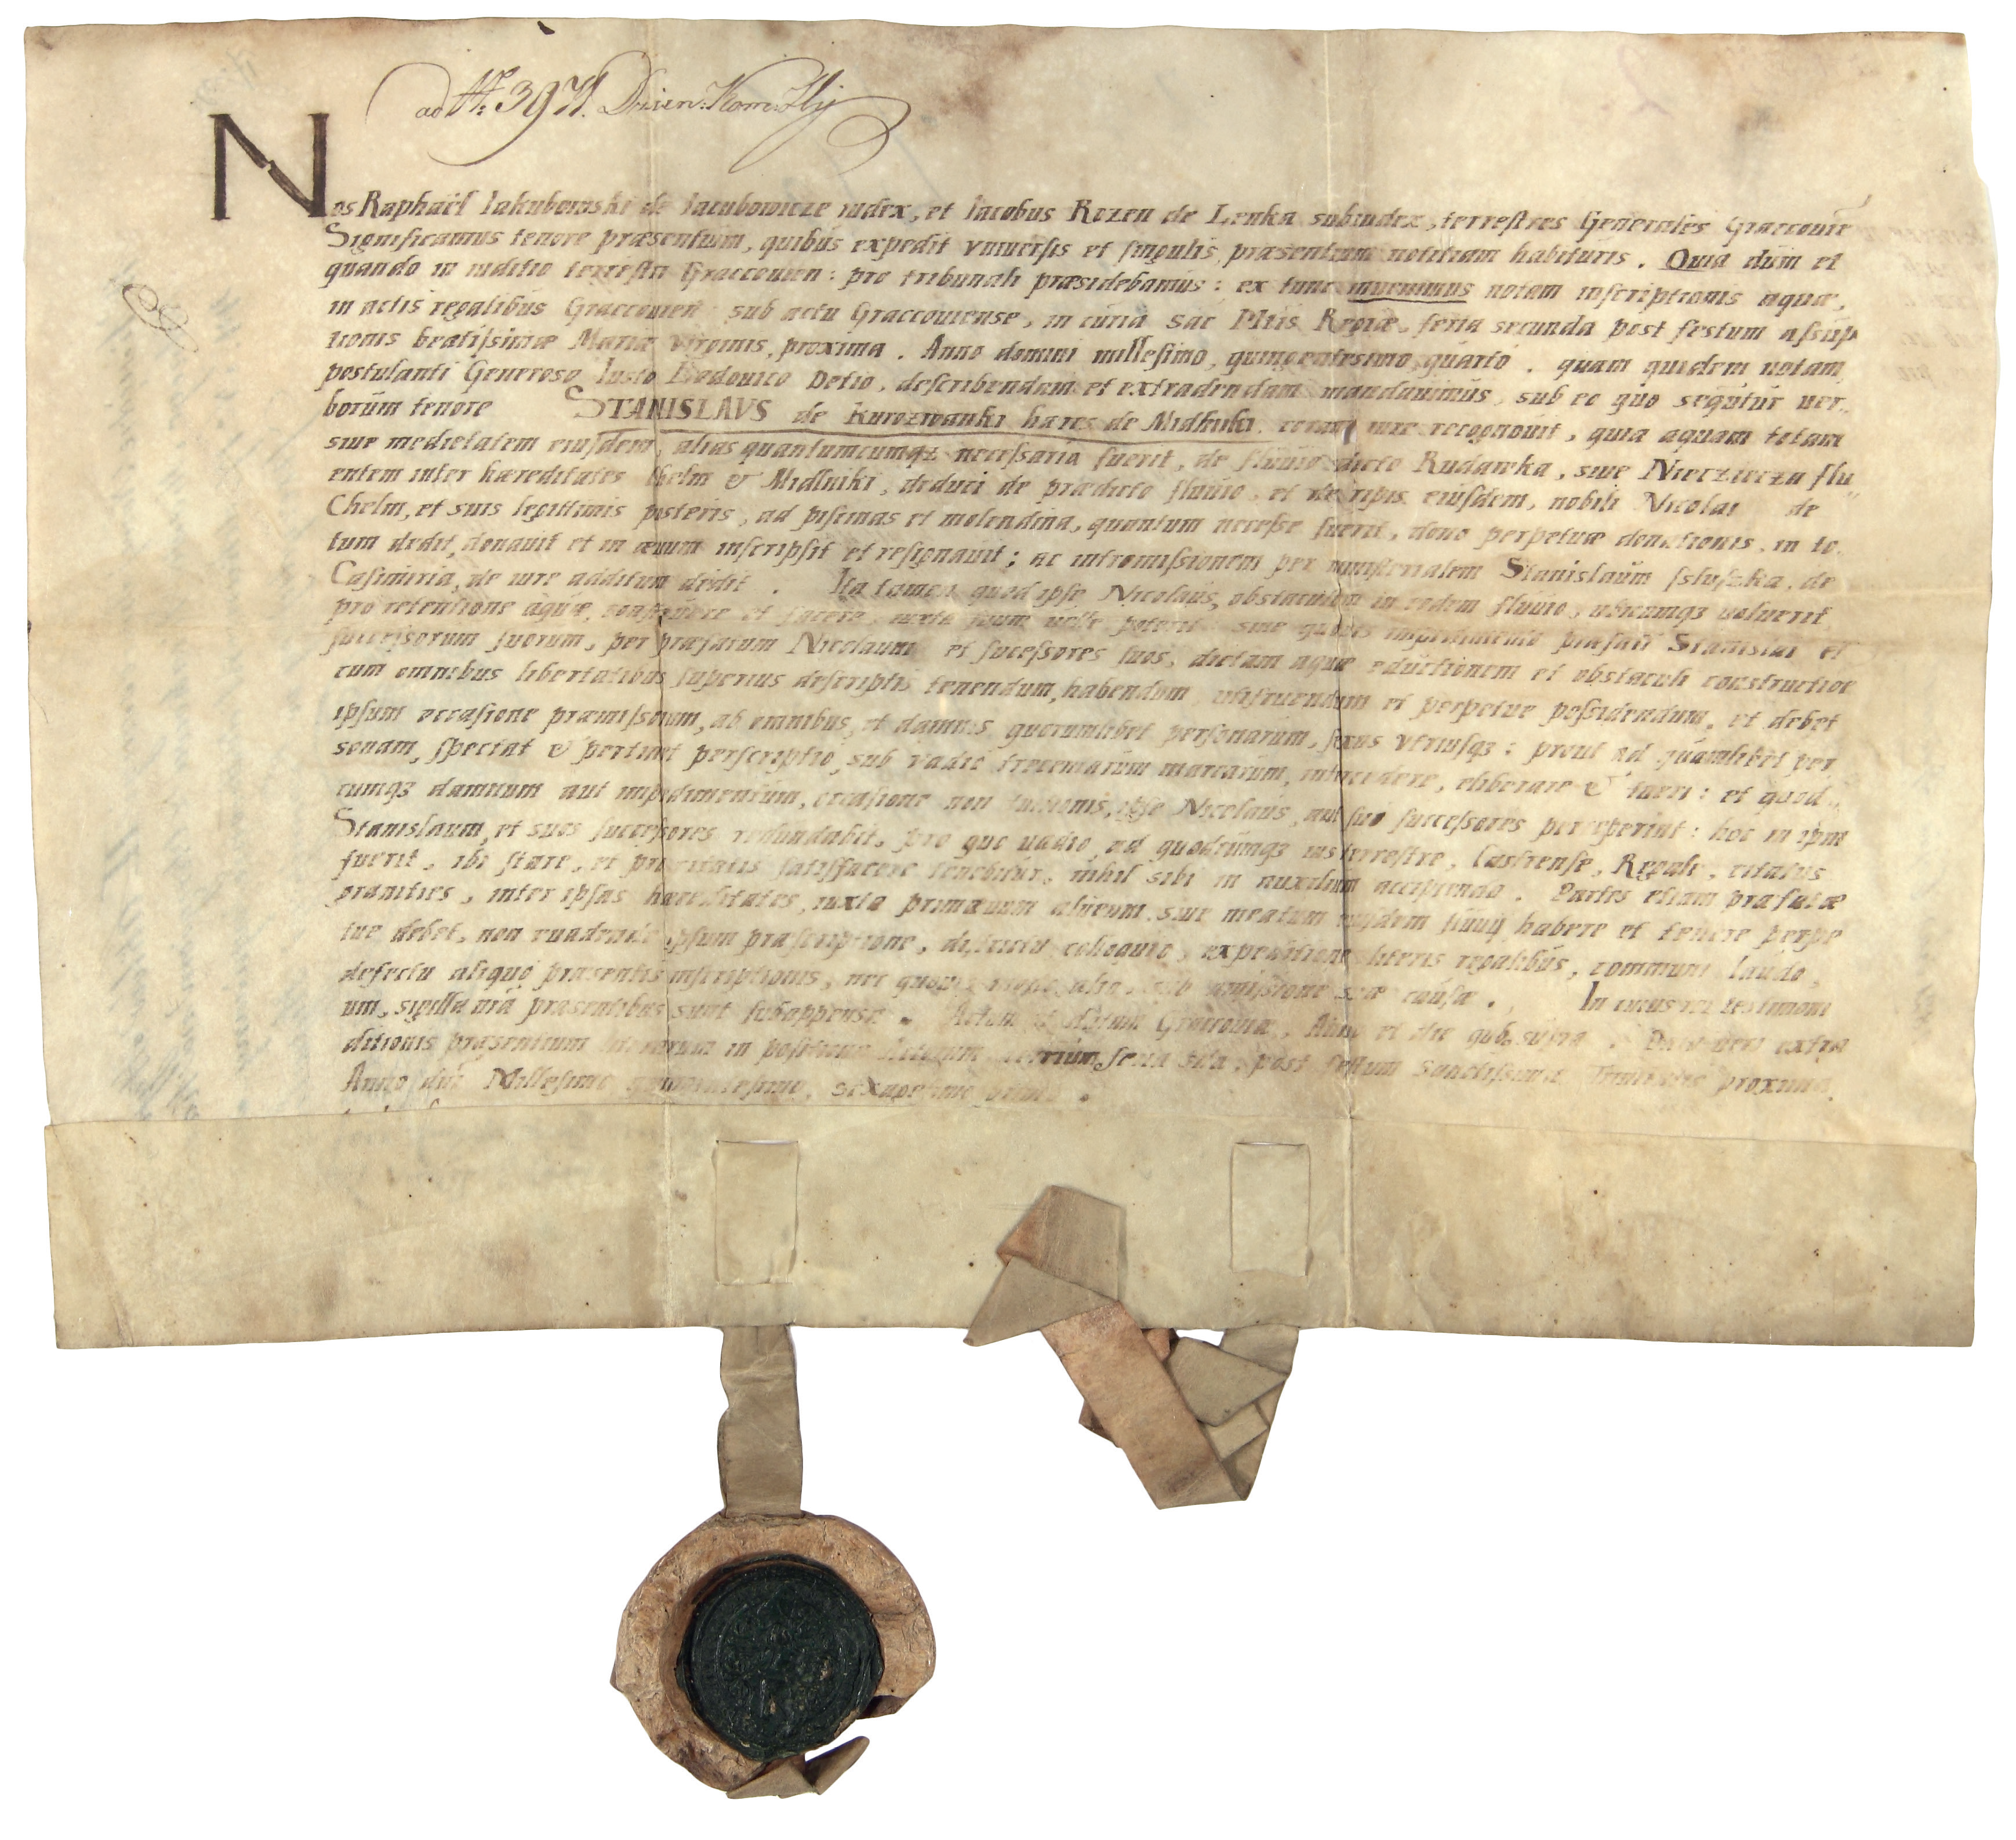 ad N: 397
Nos Raphaël Iakubowski de Iacubowicze iudex, et Iacobus Rozen de Lenka subiudex, terrestres Generales Graccouien
Significamus tenore præsentium, quibus expedit vniuersis et singulis præsentium notitiam habituris. Quia dum et
quando in iuditio terrestri Graccouien: pro tribunali præsidebamus: ex tunc inuenimus notam inscriptionis aquæ,
in actis regalibus Graccouien sub actu Graccouiense, in curia Sac Mtis Regiæ, feria secunda post festum assump
tionis beatissimæ Mariæ virginis, proxima. Anno domini millesimo, quingentesimo, quarto. quam quidem notam
postulanti Generoso Iusto Lodouico Detio, describendam et extradendam mandauimus, sub eo quo sequitur uer..
borum tenore STANISLAVS de Kurozwanki hæres de Midlniki coram iure recognouit, quia aquam totam
siue medietatem eiusdem, alias quantumcumqz necessaria fuerit, de fluuio dicto Rudawka, siue Nieczieczа flu
entem inter hæreditates Chelm & Midlniki, deduci de prædicto fluuio, et de ripis eiusdem, nobili Nicolai de
Chelm, et suis legittimis posteris, ad piscinas et molendina, quantum necesse fuerit, dono perpetuæ donationis, in to.
tum dedit, donauit et in æuum inscripsit et resignauit; ac intromissionem per ministerialem Stanislaum de
Casimiria, de iure additum dedit. Ita tamen quod ipse Nicolaus, obstaculum in eodem fluuio, ubicumqz uoluerit
pro retentione aquæ, construere et facere, iuxta suum uelle poterit siue quouis impedimento præfati Stanislai et
successorum suorum, per præfatum Nicolaum et sucessores suos, dictam aquæ eductionem et obstaculi constructione
cum omnibus libertatibus superius descriptis tenendum, habendum, utifruendum et perpetue possidendum, et debet
ipsum occasione præmissorum, ab omnibus, et damnis quorumlibet personarum, sexus vtriusqz: prout ad quamlibet per
sonam, spectat & pertinet perscriptio, sub vadio trecentarum marcarum, intercedere, eliberare & tueri: et quod..
cumqz damnum aut impedimentum, occasione non tuitionis, ipse Nicolaus, aut sui successores perceperint: hoc in ipm
Stanislaum, et suos successores redundabit, pro quo uadio, ad quodcumqz ius terrestre, Castrense, Regale, citatus
fuerit, ibi stare, et satisfacere tenebitur, nihil sibi in auxilium accipiendo. Partes etiam præfatæ
granities, inter ipsas hæreditates, iuxta primæuum alueum siue meatum eiusdem fluuij habere et tenere perpe
tue debet, non euadendo ipsum præscriptione, districtu colloquio, expeditione literis regalibus, communi laudo,
defectu aliquo præsentis inscriptionis, nec quouis modo alio, sub amissione suæ causæ. In cuius rei testimoni
um, sigilla nrã præsentibus sunt subappensa. Actum et datum Graccouiæ, Anno et die quo supra. extra
ditionis præsentium feria post festum Sanctissimæ Trinitatis proxima,
Anno dni Millesimo quingentesimo, sexagesimo